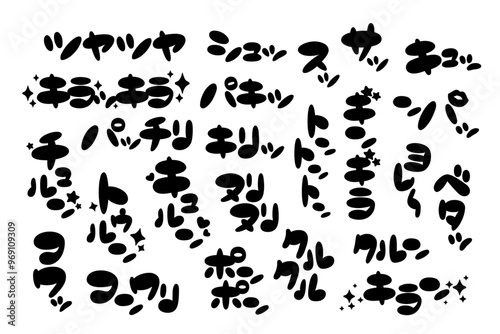 ツヤツヤ
シュッ
ズッ
サッ
キュッ
キラッキラ
パキッ
パッ
パッチリ
キリッ
トントン
キラキラ
チュルン
トゥルン
キュルン
ヌリヌリ
ヨレ〜
ベタッ
フワッ
フンワリ
ポンポン
クルクル
クルン
キラン
Adobe Stock | #969109309